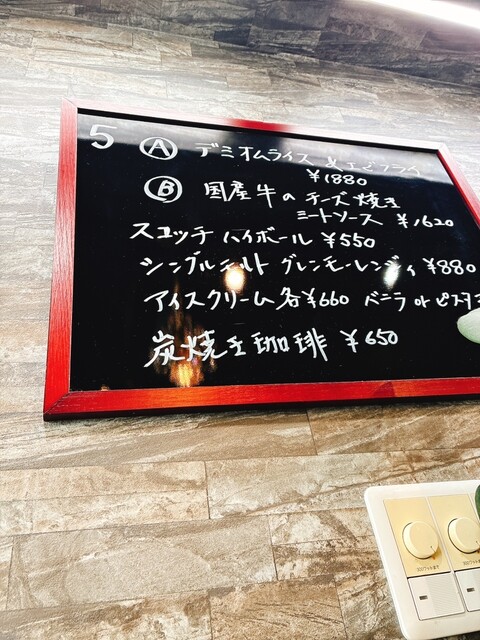 5 Ⓐ デミオムライス & エビフライ
¥1880
Ⓑ 国産牛の チーズ焼き
ミートソース ¥1620
スコッチ ハイボール ¥550
シングルモルト グレンモーレンジィ ¥880
アイスクリーム各¥660 バニラ or ピスタ
炭焼き珈琲 ¥650